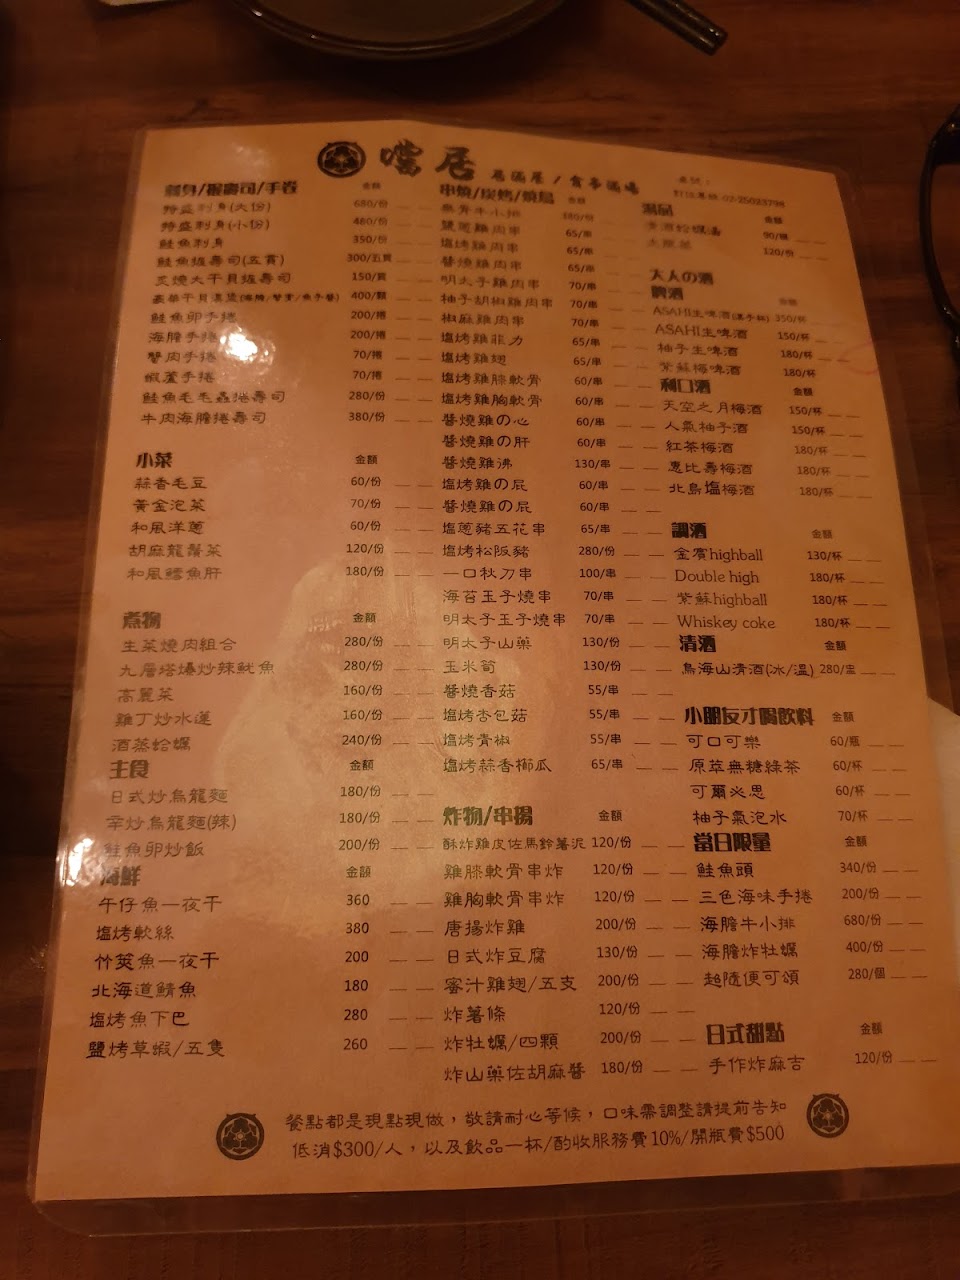 噹居 居酒屋/食事酒場
桌號：
訂位專線 02-25023798
刺身/握壽司/手卷 金額
特盛刺身(大份) 680/份
特盛刺身(小份) 460/份
鮭魚刺身 350/份
鮭魚握壽司(五貫) 300/五貫
炙燒大干貝握壽司 150/貫
400/顆
鮭魚卵手捲 200/捲
海膽手捲 200/捲
蟹肉手捲 70/捲
蝦蘆手捲 70/捲
鮭魚毛毛蟲捲壽司 280/份
牛肉海膽捲壽司 380/份
小菜 金額
蒜香毛豆 60/份
黃金泡菜 70/份
和風洋蔥 60/份
胡麻龍鬚菜 120/份
和風鱈魚肝 180/份
煮物 金額
生菜燒肉組合 280/份
九層塔爆炒辣魷魚 280/份
高麗菜 160/份
雞丁炒水蓮 160/份
酒蒸蛤蠣 240/份
主食 金額
日式炒烏龍麵 180/份
辛炒烏龍麵(辣) 180/份
鮭魚卵炒飯 200/份
海鮮 金額
午仔魚一夜干 360
塩烤軟絲 380
竹筴魚一夜干 200
北海道鯖魚 180
塩烤魚下巴 280
鹽烤草蝦/五隻 260
串燒/炭烤/燒鳥 金額
無骨牛小排 180/份
鹽蔥雞肉串 65/串
塩烤雞肉串 65/串
醬燒雞肉串 65/串
明太子雞肉串 70/串
柚子胡椒雞肉串 70/串
椒麻雞肉串 70/串
塩烤雞菲力 65/串
塩烤雞翅 65/串
塩烤雞膝軟骨 60/串
塩烤雞胸軟骨 60/串
醬燒雞の心 60/串
醬燒雞の肝 60/串
醬燒雞沸 130/串
塩烤雞の屁 60/串
醬燒雞の屁 60/串
塩蔥豬五花串 65/串
塩烤松阪豬 280/份
一口秋刀串 100/串
海苔玉子燒串 70/串
明太子玉子燒串 70/串
明太子山藥 130/份
玉米筍 130/份
醬燒香菇 55/串
塩烤杏包菇 55/串
塩烤青椒 55/串
塩烤蒜香櫛瓜 65/串
炸物/串揚 金額
酥炸雞皮佐馬鈴薯泥 120/份
雞膝軟骨串炸 120/份
雞胸軟骨串炸 120/份
唐揚炸雞 200/份
日式炸豆腐 130/份
蜜汁雞翅/五支 200/份
炸薯條 120/份
炸牡蠣/四顆 200/份
炸山藥佐胡麻醬 180/份
湯品 金額
清酒蛤蠣湯 90/碗
120/份
大人の酒
啤酒 金額
ASAHI生啤酒(凍手杯) 350/杯
ASAHI生啤酒 150/杯
柚子生啤酒 180/杯
紫蘇梅啤酒 180/杯
利口酒 金額
天空之月梅酒 150/杯
人氣柚子酒 150/杯
紅茶梅酒 180/杯
惠比壽梅酒 180/杯
北島塩梅酒 180/杯
調酒 金額
金賓highball 130/杯
Double high 180/杯
紫蘇highball 180/杯
Whiskey coke 180/杯
清酒 金額
鳥海山清酒(冰/溫) 280/盅
小朋友才喝飲料 金額
可口可樂 60/瓶
原萃無糖綠茶 60/杯
可爾必思 60/杯
柚子氣泡水 70/杯
當日限量 金額
鮭魚頭 340/份
三色海味手捲 200/份
海膽牛小排 680/份
海膽炸牡蠣 400/份
超隨便可頌 280/個
日式甜點 金額
手作炸麻吉 120/份
餐點都是現點現做，敬請耐心等候，口味需調整請提前告知
低消$300/人，以及飲品一杯/酌收服務費10%/開瓶費$500